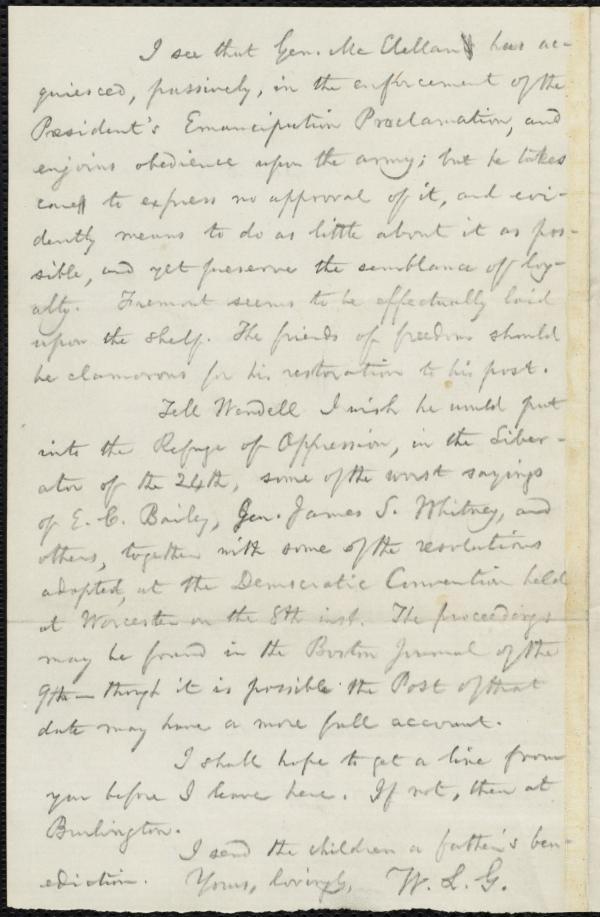 I see that Gen. McClellan has ac-
quiesced, passively, in the enforcement of the
President's Emancipation Proclamation, and
enjoins obedience upon the army; but he takes
care to express no approval of it, and evi-
dently means to do as little about it as pos-
sible, and yet preserve the semblance of loy-
alty. Fremont seems to be effectually laid
upon the shelf. The friends of freedom should
be clamorous for his restoration to his post.
Tell Wendell I wish he would put
into the Refuge of Oppression, in the Liber-
ator of the 24th, some of the worst sayings
of E. C. Baily, Gen. James S. Whitney, and
others, together with some of the resolutions
adopted, at the Democratic Convention held
at Worcester on the 8th inst. The proceedings
may be found in the Boston Journal of the
9th — though it is possible the Post of that
date may have a more full account.
I shall hope to get a line from
you before I leave here. If not, then at
Burlington.
I send the children a father's ben-
ediction. Yours, lovingly, W. L. G.